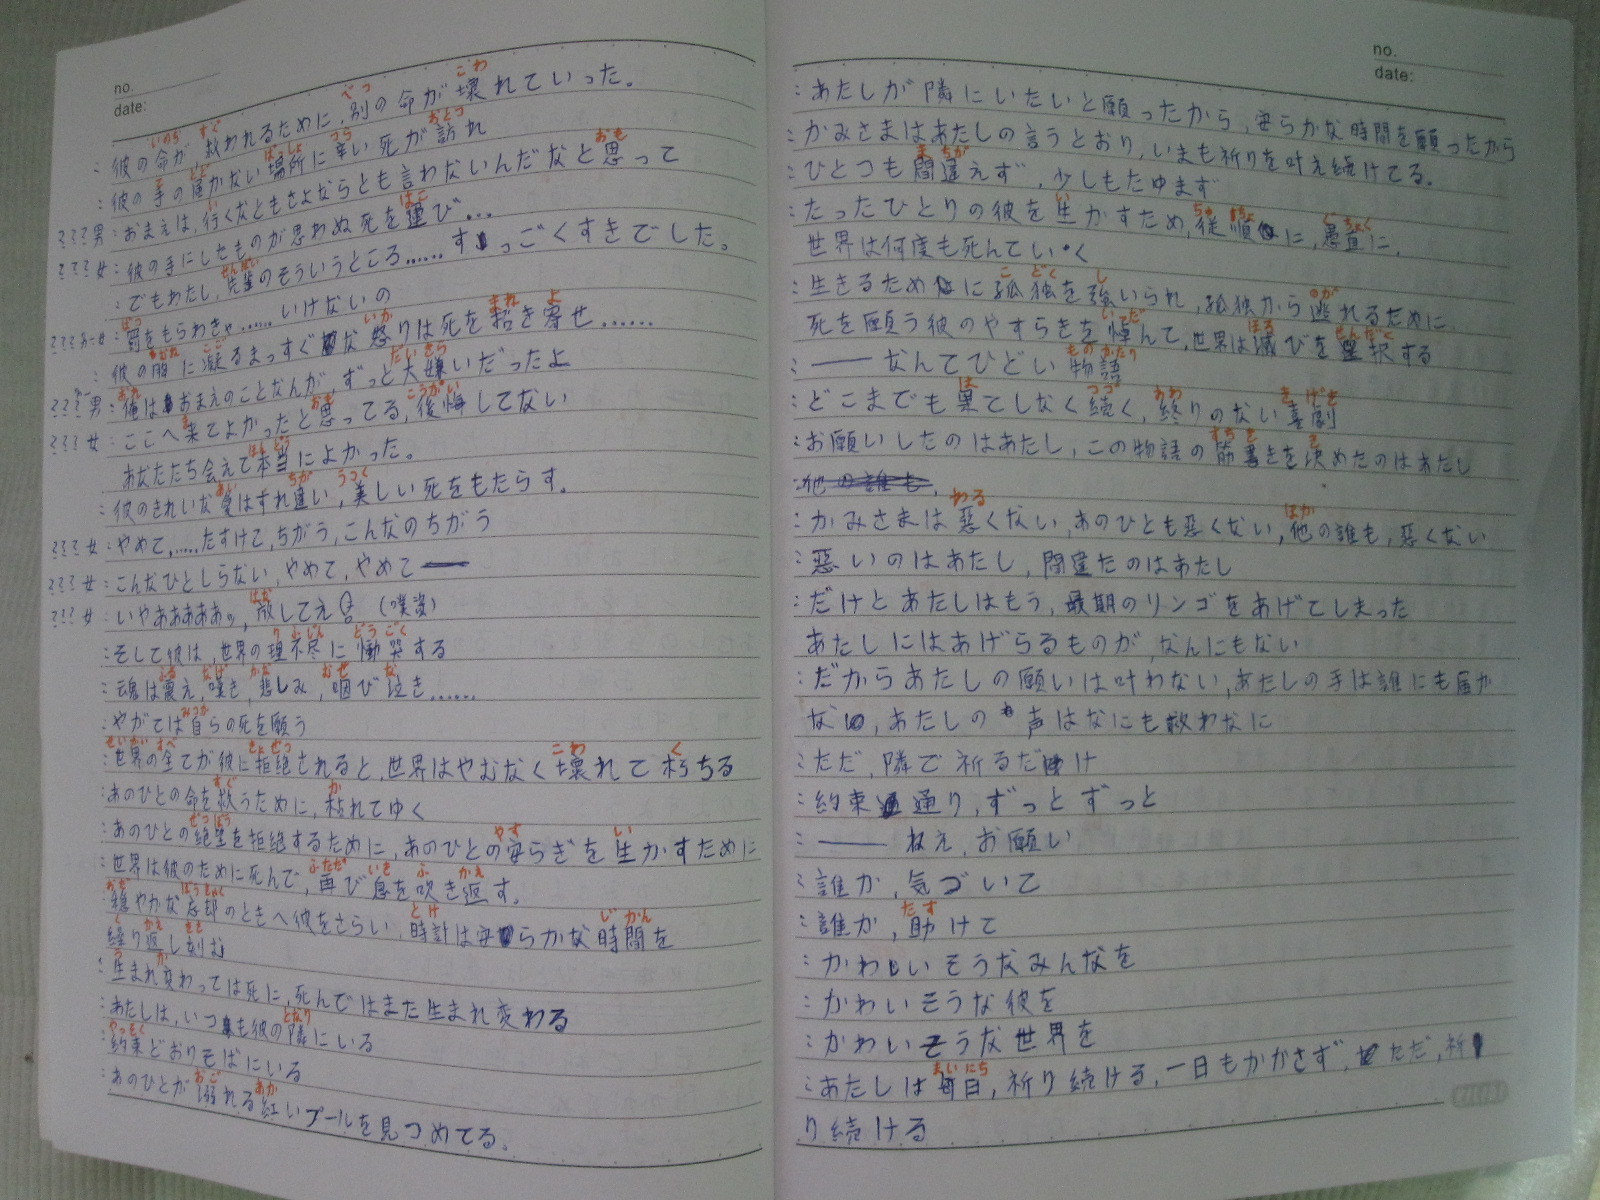 no.
date:
：彼の命が、救われるために、別の命が壊れていった。
彼の手の届かない場所に辛い死が訪れ
？？？男：おまえは、行くなともさよならとも言わないんだなと思って
？？？女：彼の手にしたものが思わぬ死を運び…
：でもわたし、先輩のそういうところ……すっごくすきでした。
？？？お一女：罰をもらわきゃ……いけないの
：彼の胸に凝るまっすぐな怒りは死を招き寄せ……
？？？男：俺はおまえのことなんが、ずっと大嫌いだったよ
？？？女：ここへ来てよかったと思ってる、後悔してない
あなたたち会えて本当によかった。
：彼のきれいな愛はすれ違い、美しい死をもたらす。
？？？女：やめて、……たすけて、ちがう、こんなのちがう
？？？女：こんなひとしらない、やめて、やめて──
？？？女：いやあああああ。、放してえ（噗姿）
：そして彼は、世界の理不尽に慟哭する
：魂は震え、嘆き、悲しみ、咽び泣き……
：やがては自らの死を願う
：世界の全てが彼に拒絶されると、世界はやむなく壊れて朽ちる
：あのひとの命を救うために、枯れてゆく
：あのひとの絶望を拒絶するために、あのひとの安らぎを生かすために
：世界は彼のために死んで、再び息を吹き返す。
：穏やかな忘却のときへ彼をさらい、時計は安らかな時間を
繰り返し刻む
：生まれ変わっては死に、死んではまた生まれ変わる
：あたしは、いつも彼の隣にいる
：約束どおりそばにいる
：あのひとが溺れる紅いプールを見つめてる。
no.
date:
：あたしが隣にいたいと願ったから、安らかな時間を願ったから
：かみさまはあたしの言うとおり、いまも祈りを叶え続けてる。
：ひとつも間違えず、少しもたゆまず
：たったひとりの彼を生かすため、従順に、愚直に、
世界は何度も死んでいく
：生きるために孤独を強いられ、孤独から逃れるために
死を願う彼のやすらきを悼んて、世界は滅びを選択する
：──なんてひどい物語
：どこまでも果てしなく続く、終りのない喜劇
：お願いしたのはあたし、この物語の筋書きを決めたのはあたし
：他の誰も、
：かみさまは悪くない、あのひとも悪くない、他の誰も、悪くない
：悪いのはあたし、間違たのはあたし
：だけとあたしはもう、最期のリンゴをあげてしまった
あたしにはあげらるものが、なんにもない
：だからあたしの願いは叶わない、あたしの手は誰にも届か
ない、あたしの声はなにも救わなに
：ただ、隣で祈るだけ
：約束通り、ずっとずっと
：──ねえ、お願い
：誰か、気づいて
：誰か、助けて
：かわいそうなみんなを
：かわいそうな彼を
：かわいそうな世界を
：あたしは毎日、祈り続ける、一日もかかさず、ただ、祈
り続ける